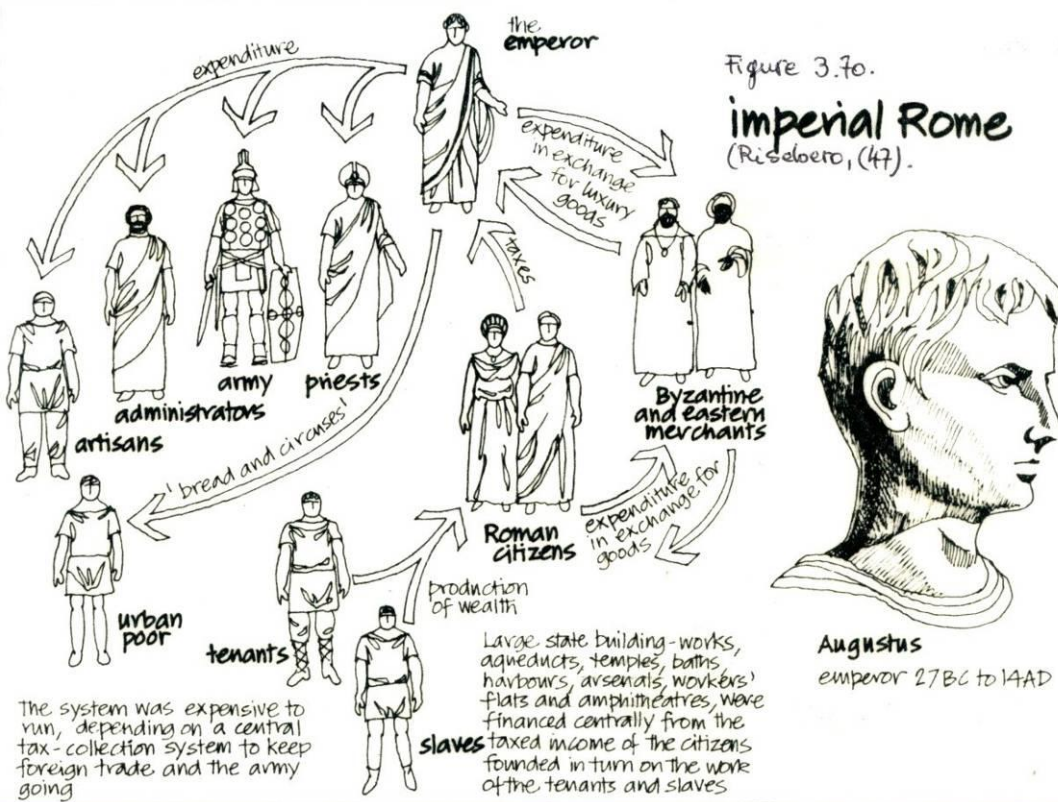 expenditure
the
emperor
Figure 3.70.
imperial Rome
(Risebero, (47).
expenditure
in exchange
for luxury
goods
taxes
army
priests
administrators
artisans
Byzantine
and eastern
merchants
'bread and circuses'
Roman
citizens
expenditure
in exchange for
goods
production
of wealth
urban
poor
tenants
slaves
Augustus
emperor 27BC to 14AD
The system was expensive to
run, depending on a central
tax-collection system to keep
foreign trade and the army
going
Large state building-works,
aqueducts, temples, baths,
harbours, arsenals, workers'
flats and amphitheatres, were
financed centrally from the
taxed income of the citizens
founded in turn on the work
of the tenants and slaves